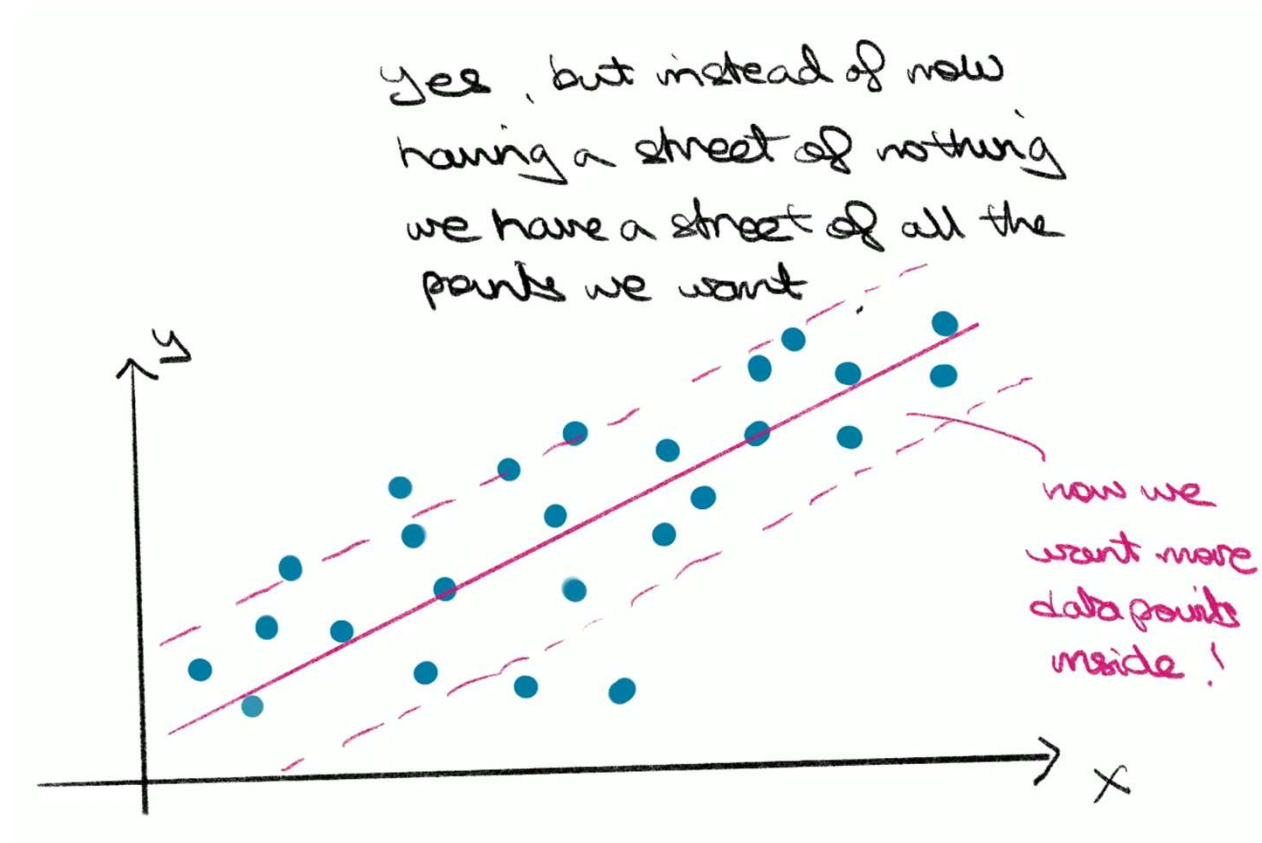 yes, but instead of now
having a street of nothing
we have a street of all the
points we want
y
now we
want more
datapoints
inside!
x